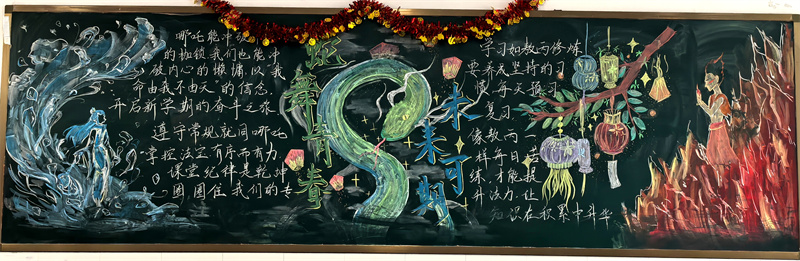 哪吒能冲破
的枷锁我们也能冲
破内心的慵懒以"我
命由我不由天"的信念
开启新学期的奋斗之旅
遵守常规就同哪吒
掌控法宝有序而有力
课堂纪律是乾坤
圈圈住我们的专
蛇舞青春
未来可期
学习如敖丙修炼
要养成坚持的习
惯每天预习
复习
像敖丙一
样每日
练才能提
升法力让
知识在积累中升华